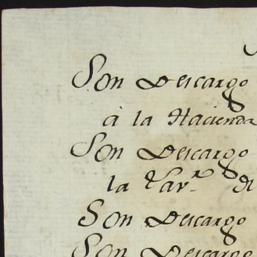 Son Descargo
à la Hacienda
Son Descargo
la
Son Descargo
Son Descargo